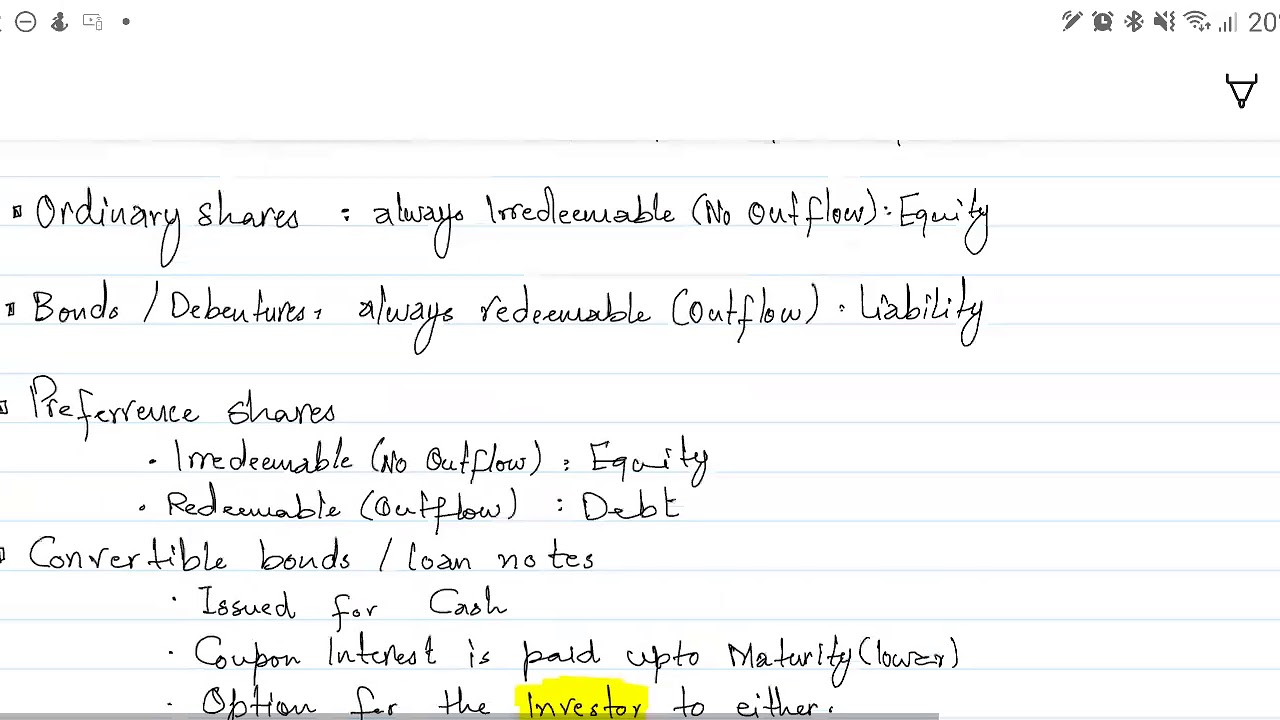 20%
Ordinary shares : always Irredeemable (No Outflow) : Equity
Bonds / Debentures, always redeemable (Outflow) : Liability
Preferrence shares
• Irredeemable (No Outflow) : Equity
• Redeemable (Outflow) : Debt
Convertible bonds / loan notes
• Issued for Cash
• Coupon Interest is paid upto Maturity (lower)
• Option for the Investor to either.